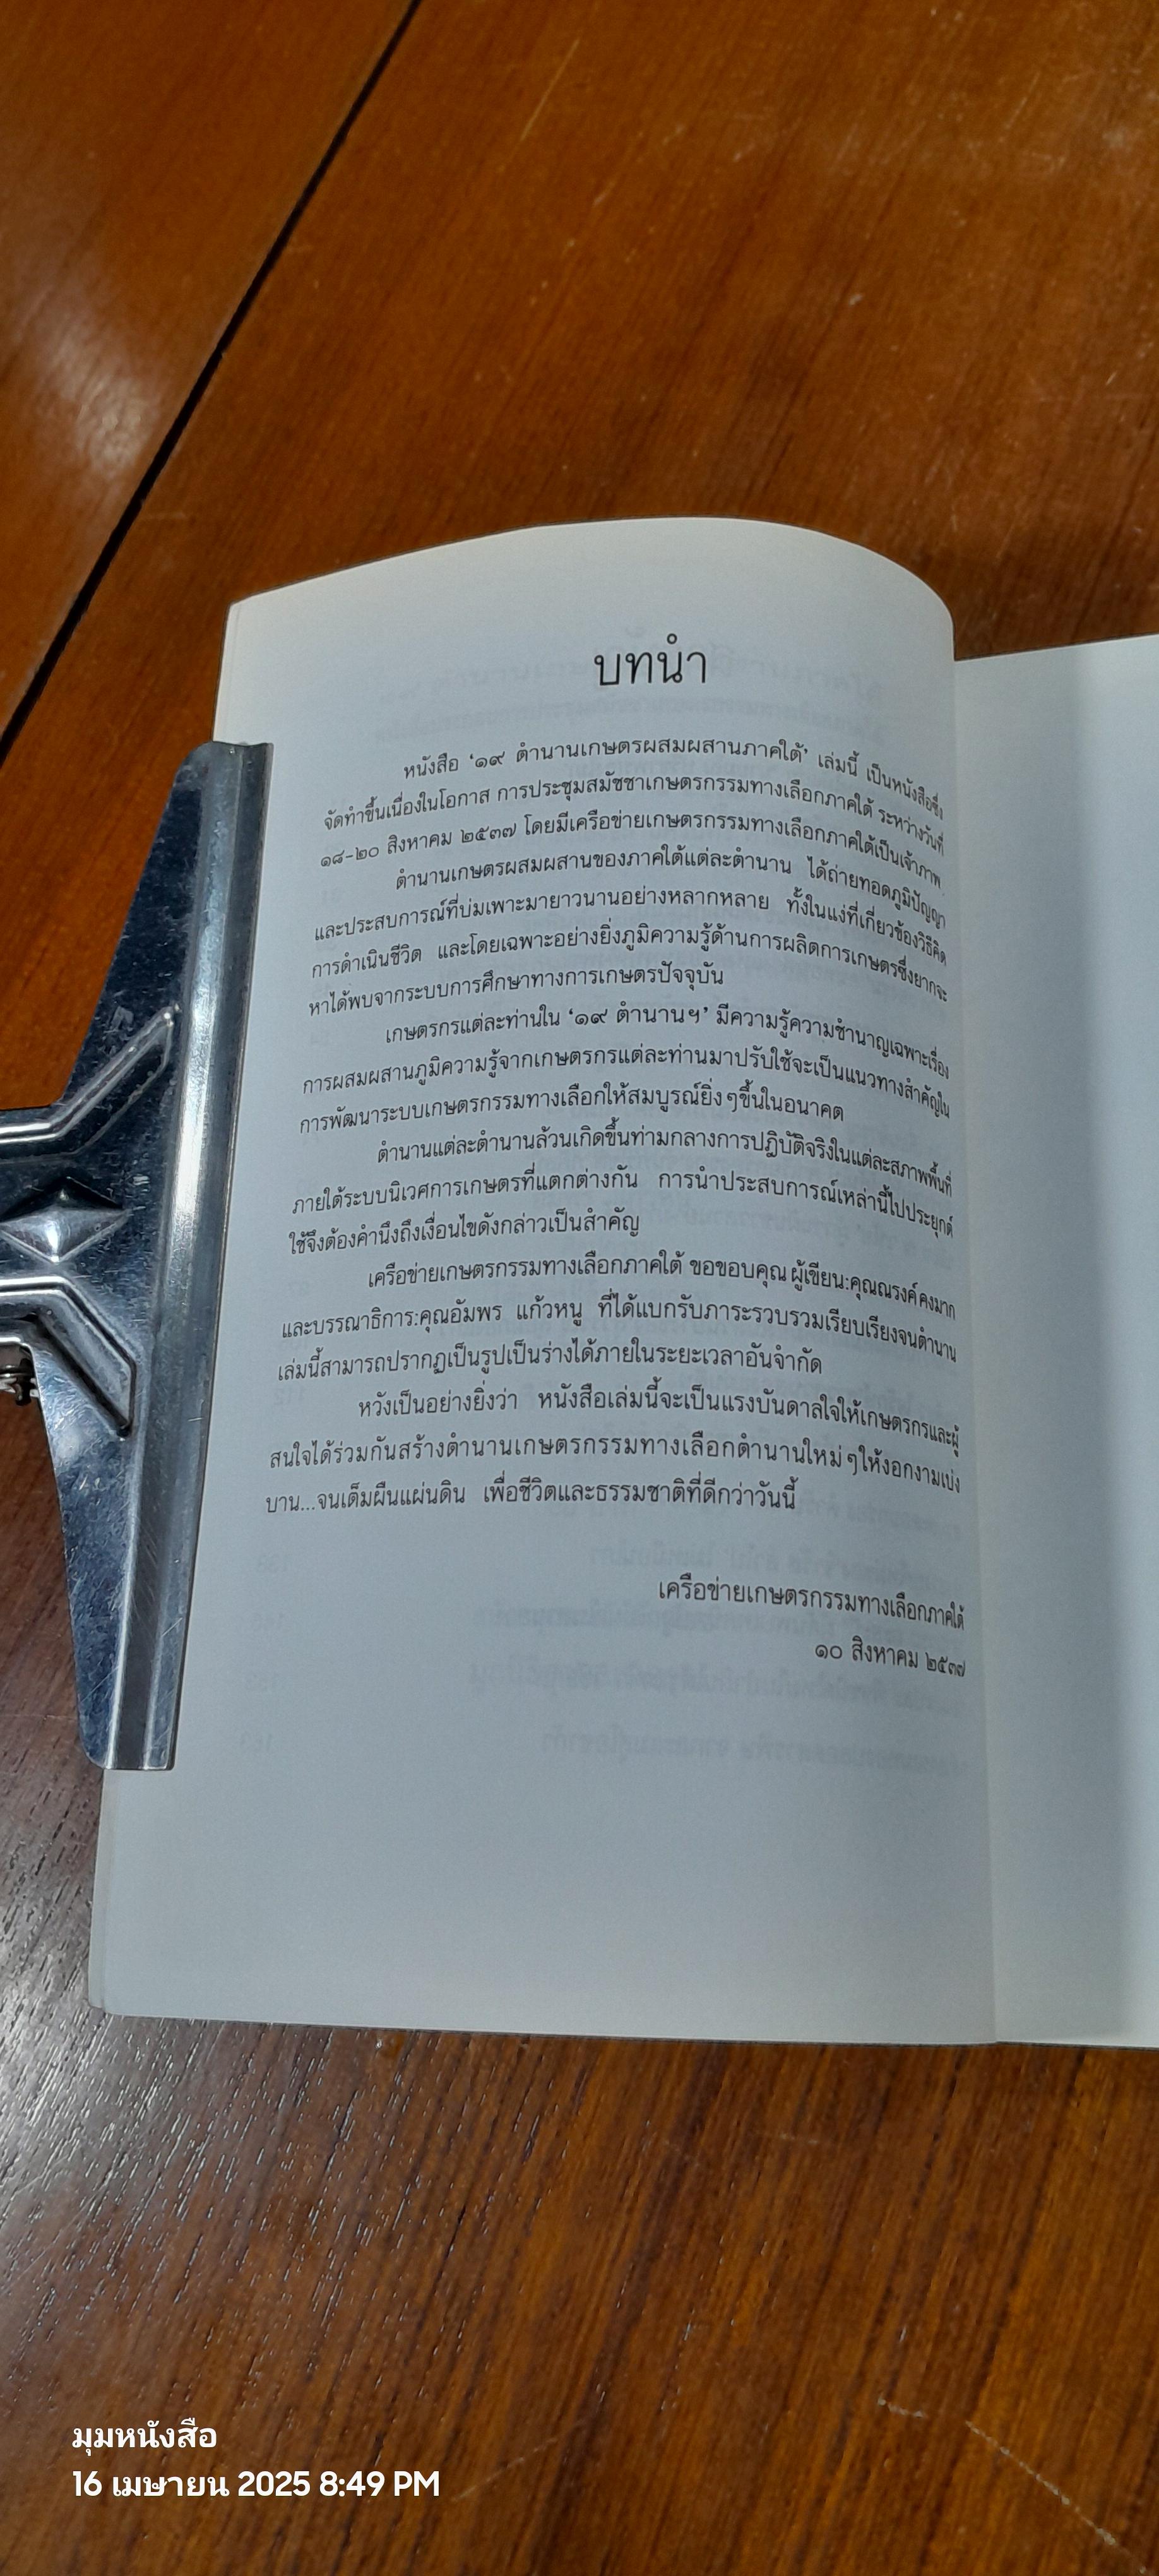 บทนำ
หนังสือ ‘๑๙ ตำนานเกษตรผสมผสานภาคใต้’ เล่มนี้ เป็นหนังสือซึ่ง
จัดทำขึ้นเนื่องในโอกาส การประชุมสมัชชาเกษตรกรรมทางเลือกภาคใต้ ระหว่างวันที่
๑๘-๒๐ สิงหาคม ๒๕๓๗ โดยมีเครือข่ายเกษตรกรรมทางเลือกภาคใต้เป็นเจ้าภาพ
ตำนานเกษตรผสมผสานของภาคใต้แต่ละตำนาน ได้ถ่ายทอดภูมิปัญญา
และประสบการณ์ที่บ่มเพาะมายาวนานอย่างหลากหลาย ทั้งในแง่ที่เกี่ยวข้องวิธีคิด
การดำเนินชีวิต และโดยเฉพาะอย่างยิ่งภูมิความรู้ด้านการผลิตการเกษตรซึ่งยากจะ
หาได้พบจากระบบการศึกษาทางการเกษตรปัจจุบัน
เกษตรกรแต่ละท่านใน ‘๑๙ ตำนานฯ’ มีความรู้ความชำนาญเฉพาะเรื่อง
การผสมผสานภูมิความรู้จากเกษตรกรแต่ละท่านมาปรับใช้จะเป็นแนวทางสำคัญใน
การพัฒนาระบบเกษตรกรรมทางเลือกให้สมบูรณ์ยิ่งๆขึ้นในอนาคต
ตำนานแต่ละตำนานล้วนเกิดขึ้นท่ามกลางการปฏิบัติจริงในแต่ละสภาพพื้นที่
ภายใต้ระบบนิเวศการเกษตรที่แตกต่างกัน การนำประสบการณ์เหล่านี้ไปประยุกต์
ใช้จึงต้องคำนึงถึงเงื่อนไขดังกล่าวเป็นสำคัญ
เครือข่ายเกษตรกรรมทางเลือกภาคใต้ ขอขอบคุณ ผู้เขียน:คุณณรงค์ คงมาก
และบรรณาธิการ:คุณอัมพร แก้วหนู ที่ได้แบกรับภาระรวบรวมเรียบเรียงจนตำนาน
เล่มนี้สามารถปรากฏเป็นรูปเป็นร่างได้ภายในระยะเวลาอันจำกัด
หวังเป็นอย่างยิ่งว่า หนังสือเล่มนี้จะเป็นแรงบันดาลใจให้เกษตรกรและผู้
สนใจได้ร่วมกันสร้างตำนานเกษตรกรรมทางเลือกตำนานใหม่ๆให้งอกงามเบ่ง
บาน...จนเต็มผืนแผ่นดิน เพื่อชีวิตและธรรมชาติที่ดีกว่าวันนี้
เครือข่ายเกษตรกรรมทางเลือกภาคใต้
๑๐ สิงหาคม ๒๕๓๗
มุมหนังสือ
16 เมษายน 2025 8:49 PM